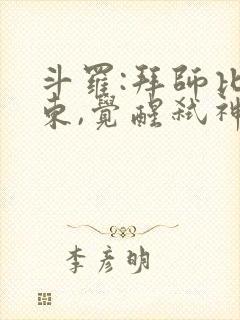 斗羅:拜師比
東,覺醒弒神
李彥明